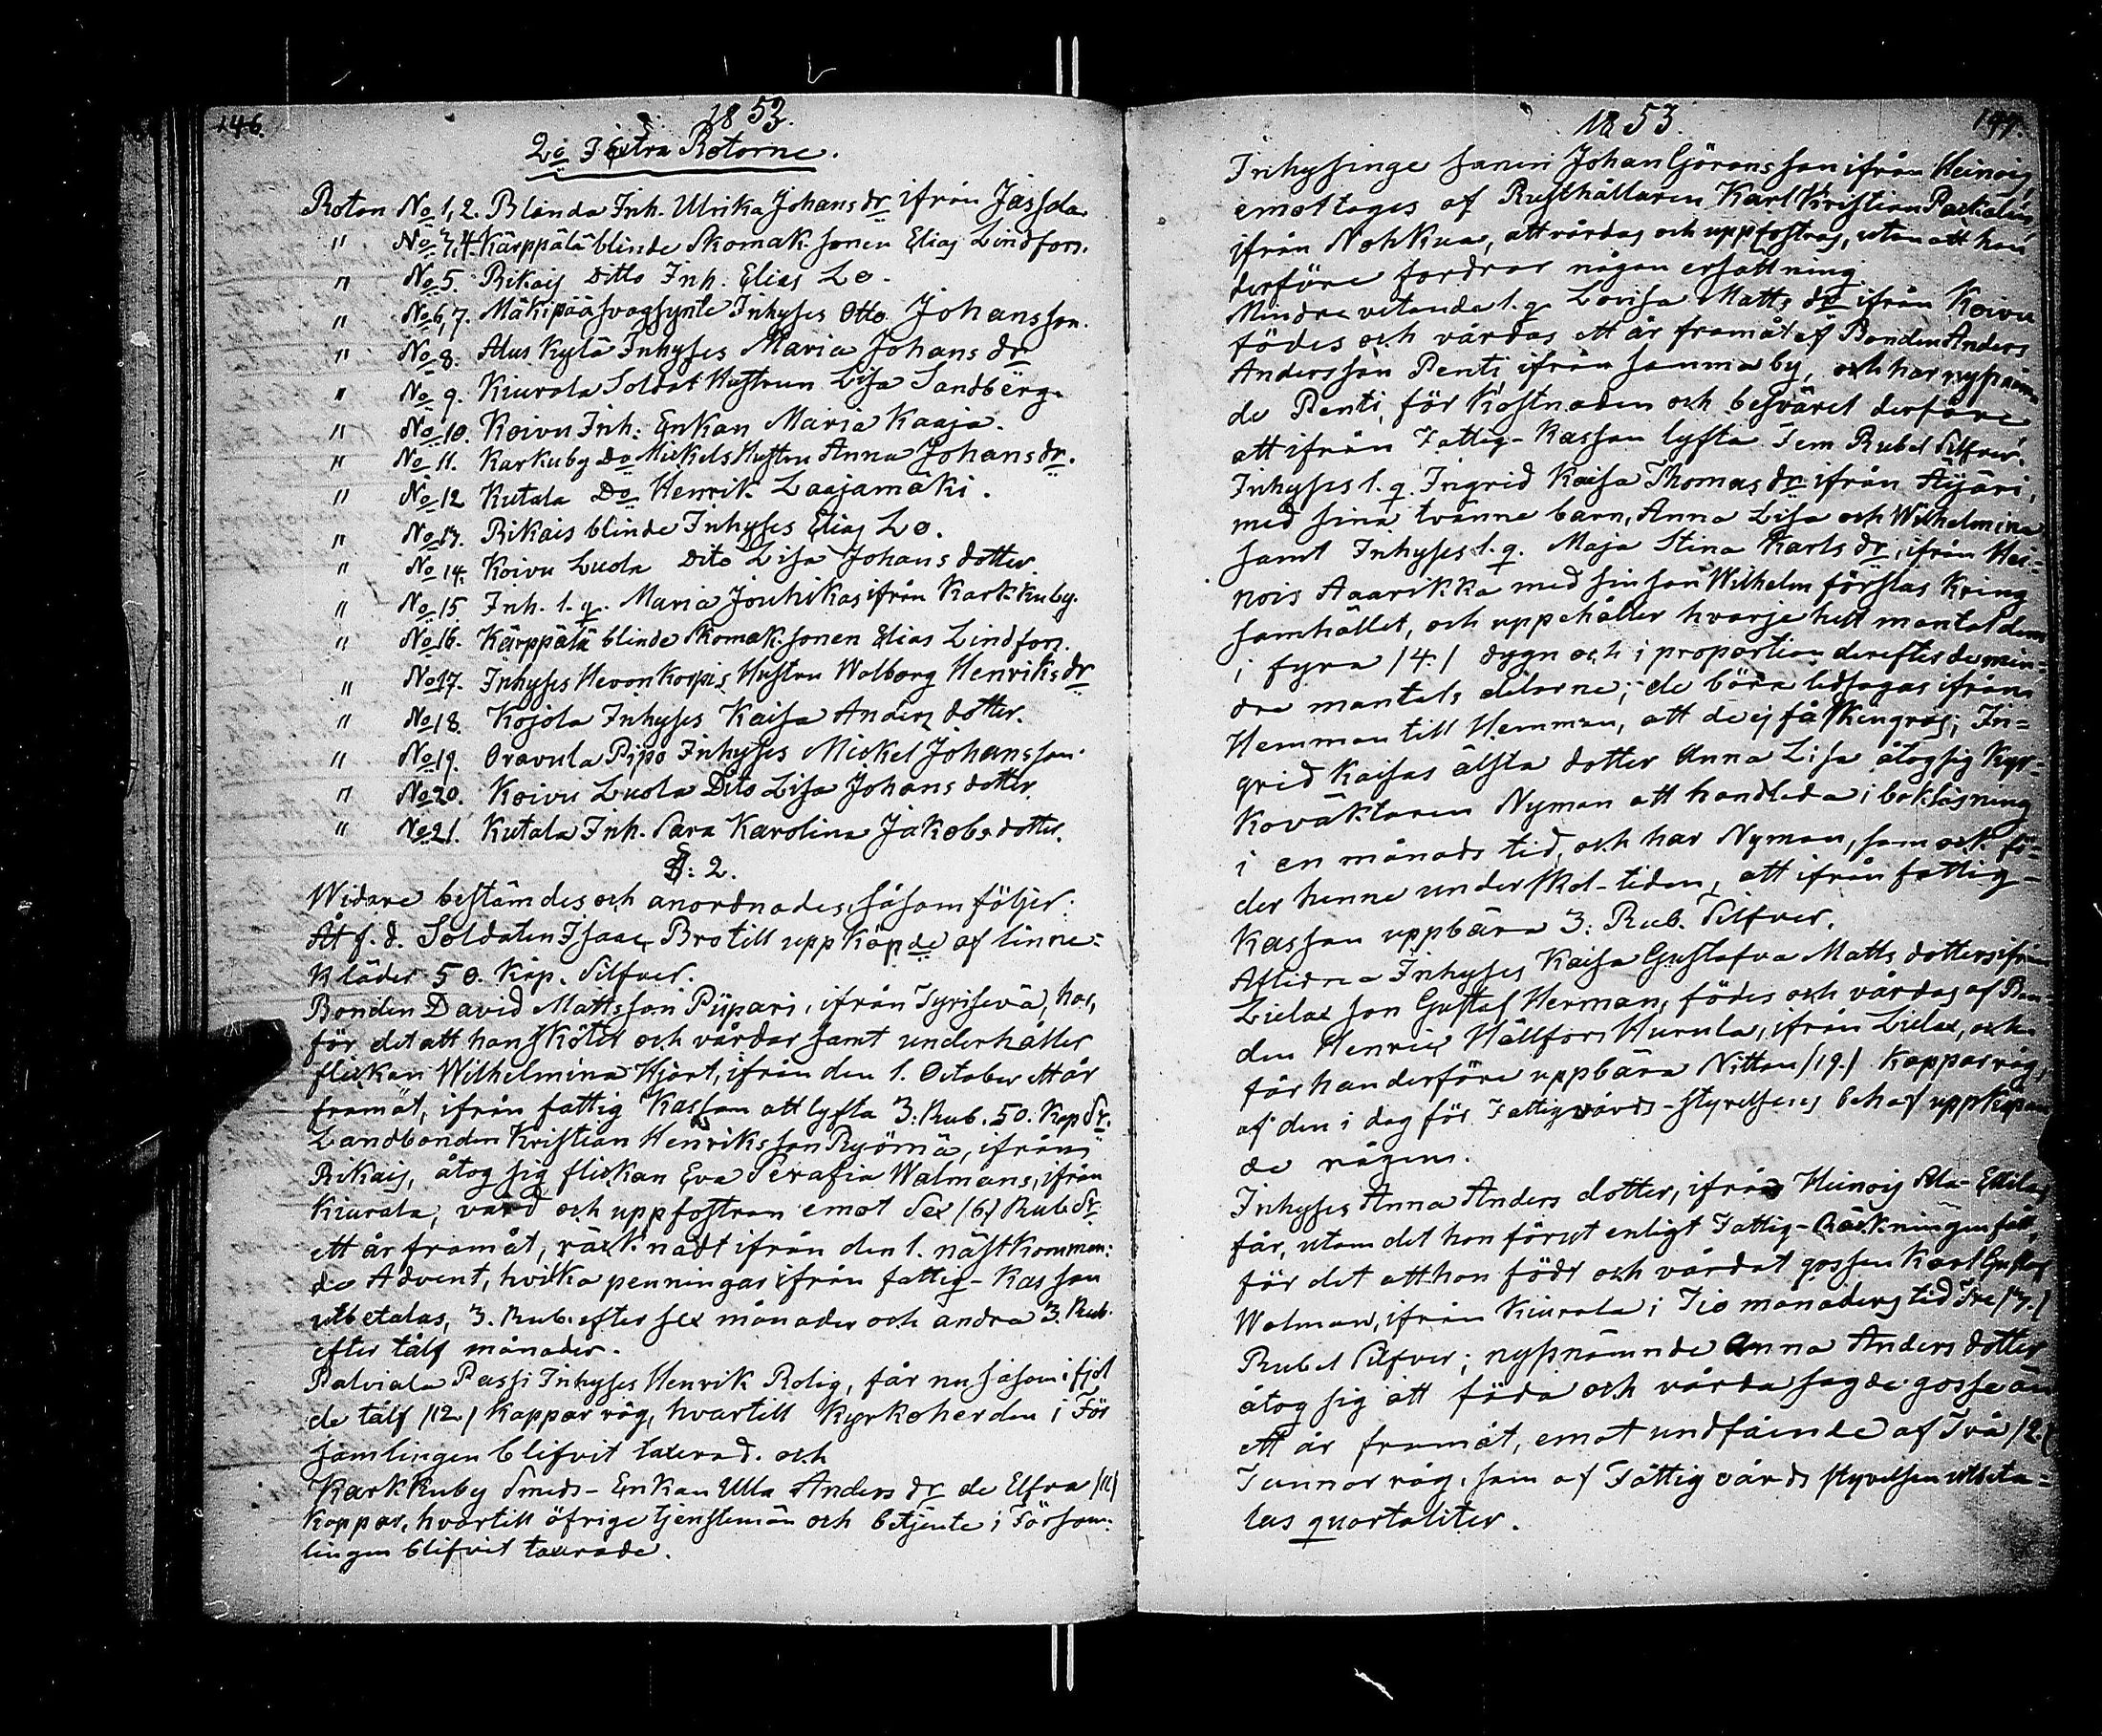 146.
1853.
2o I Extra Rotorne.
Roton No 1, 2. Blinda Inh. Ulrika Johans dr ifrån Jassda
" No 3, 4. Kärppälä blinde Skomak. sonen Elias Lindfors.
" No 5. Rikais Ditto Inh. Elias Lo.
" No 6, 7. Mäkipää svagsynte Inhyses Otto Johansson.
" No 8. Alus Kylä Inhyses Maria Johans dr
" No 9. Kiurala Soldat Hustrun Lisa Sandberg.
" No 10. Koivu Inh: Enkan Maria Kaaja.
" No 11. Karkuby Do Mickels Hustru Anna Johans dr.
" No 12 Kutala Do Henrik Laajamäki.
" No 13. Rikais blinde Inhyses Elias Lo.
" No 14. Koivu Luola Dito Lisa Johans dotter.
" No 15 Inh. l. q. Maria Jouhikas ifrån Karkkuby.
" No 16. Kärppälä blinde Skomak. sonen Elias Lindfors.
" No 17. Inhyses Hevonkorpis Hustru Walborg Henriks dr
" No 18. Kojola Inhyses Kaisa Anders dotter.
" No 19. Oravula Pipo Inhyses Mickel Johansson.
" No 20. Koivu Luola Dito Lisa Johans dotter.
" No 21. Kutala Inh. Sara Karolina Jakobs dotter.
§: 2.
Widare bestämdes och anordnades, såsom följer:
Åt f. d. Soldaten Isaac Bro till uppköpde af linne-
kläder 50. Kop. Silfver.
Bonden David Mattsson Piipari, ifrån Tyrisevä, har,
för det att han sköter och vårdar samt underhåller
flickan Wilhelmina Hjort, ifrån den 1. October ett år
framåt, ifrån fattig Kassan att lyfta 3: Rub. 50. Kop Sr.
Landbonden Kristian Henriksson Ryömä, ifrån
Rikais, åtog sig flickan Eva Serafia Walmans, ifrån
Kiurala, vård och uppfostran emot Sex (6.) Rub Sr
ett år framåt, räknadt ifrån den 1. nästkommen:
de Advent, hvilka penningar ifrån fattig-Kassan
utbetalas, 3. Rub. efter sex månader och andra 3. Rub.
efter tålf månader.
Palviala Passi Inhyses Henrik Rolig, får nu såsom i fjol
de tålf (12.) Kappar råg, hvartill Kyrkoherden i För
samlingen blifvit taxerad. och
Karkkuby Smeds-Enkan Ulla Anders dr de Elfva (11)
Kappar, hvartill öfrige tjenstemän och betjente i Försam:
lingen blifvit taxerade.
147.
1853.
Inhysinge sonen Johan Göransson ifrån Heinois,
emottages af Rusthållaren Karl Kristian
ifrån Nohkua, att vårdas och uppfostras, utan att han
derföre fordrar någon ersättning
Mindre vetande l. q. Lovisa Matts dr ifrån Koivu
födes och vårdas ett år framåt af Bonden Anders
Andersson Penti ifrån samma by, och har nyssnämn
de Penti för Kostnaden och besväret derföre
att ifrån Fattig-Kassan lyfta Fem Rubel Silfver.
Inhyses l. q. Ingrid Kaisa Thomas dr ifrån Äijäri,
med sina tvänne barn, Anna Lisa och Wilhelmina
samt Inhyses l. q. Maja Stina Karls dr, ifrån Hei-
nois Aarikka med sin son Wilhelm förslas kring
samhället, och uppehåller hvarje helt mantal dem
i fyra (4.) dygn och i proportion derefter de min-
dre mantals delarne; de böra ledsagas ifrån
Hemman till Hemman, att de ej få kringgås; In-
grid Kaisas älsta dotter Anna Lisa åtog sig Kyr-
koväktaren Nyman att handleda i bokläsning
i en månads tid, och har Nyman, som ock fö-
der henne under skol-tiden, att ifrån fattig-
Kassan uppbära 3: Rub. Silfver.
Aflidna Inhyses Kaisa Gustafva Matts dotters ifrån
Lielax son Gustaf Herman, födes och vårdas af Bon-
den Henric Hällfors Hurula, ifrån Lielax, och
får han derföre uppbära Nitton (19.) Kappar råg,
af den i dag för Fattigvårds-styrelsens behof uppköpan
de rågen.
Inhyses Anna Anders dotter, ifrån Heinois Ala-Ettilas
får, utom det hon förut enligt Fattig-Räkningen fått,
för det att hon födt och vårdat gossen Karl Gustaf
Walman, ifrån Kiurala i Tio månaders tid Tre (3.)
Rubel Silfver; nyssnämnde Anna Anders dotter
åtog sig att föda och vårda sagde gosse än
ett år framåt, emot undfående af Två (2.)
Tunnor råg, som af Fattigvårds styrelsen utbeta-
las quartaliter.